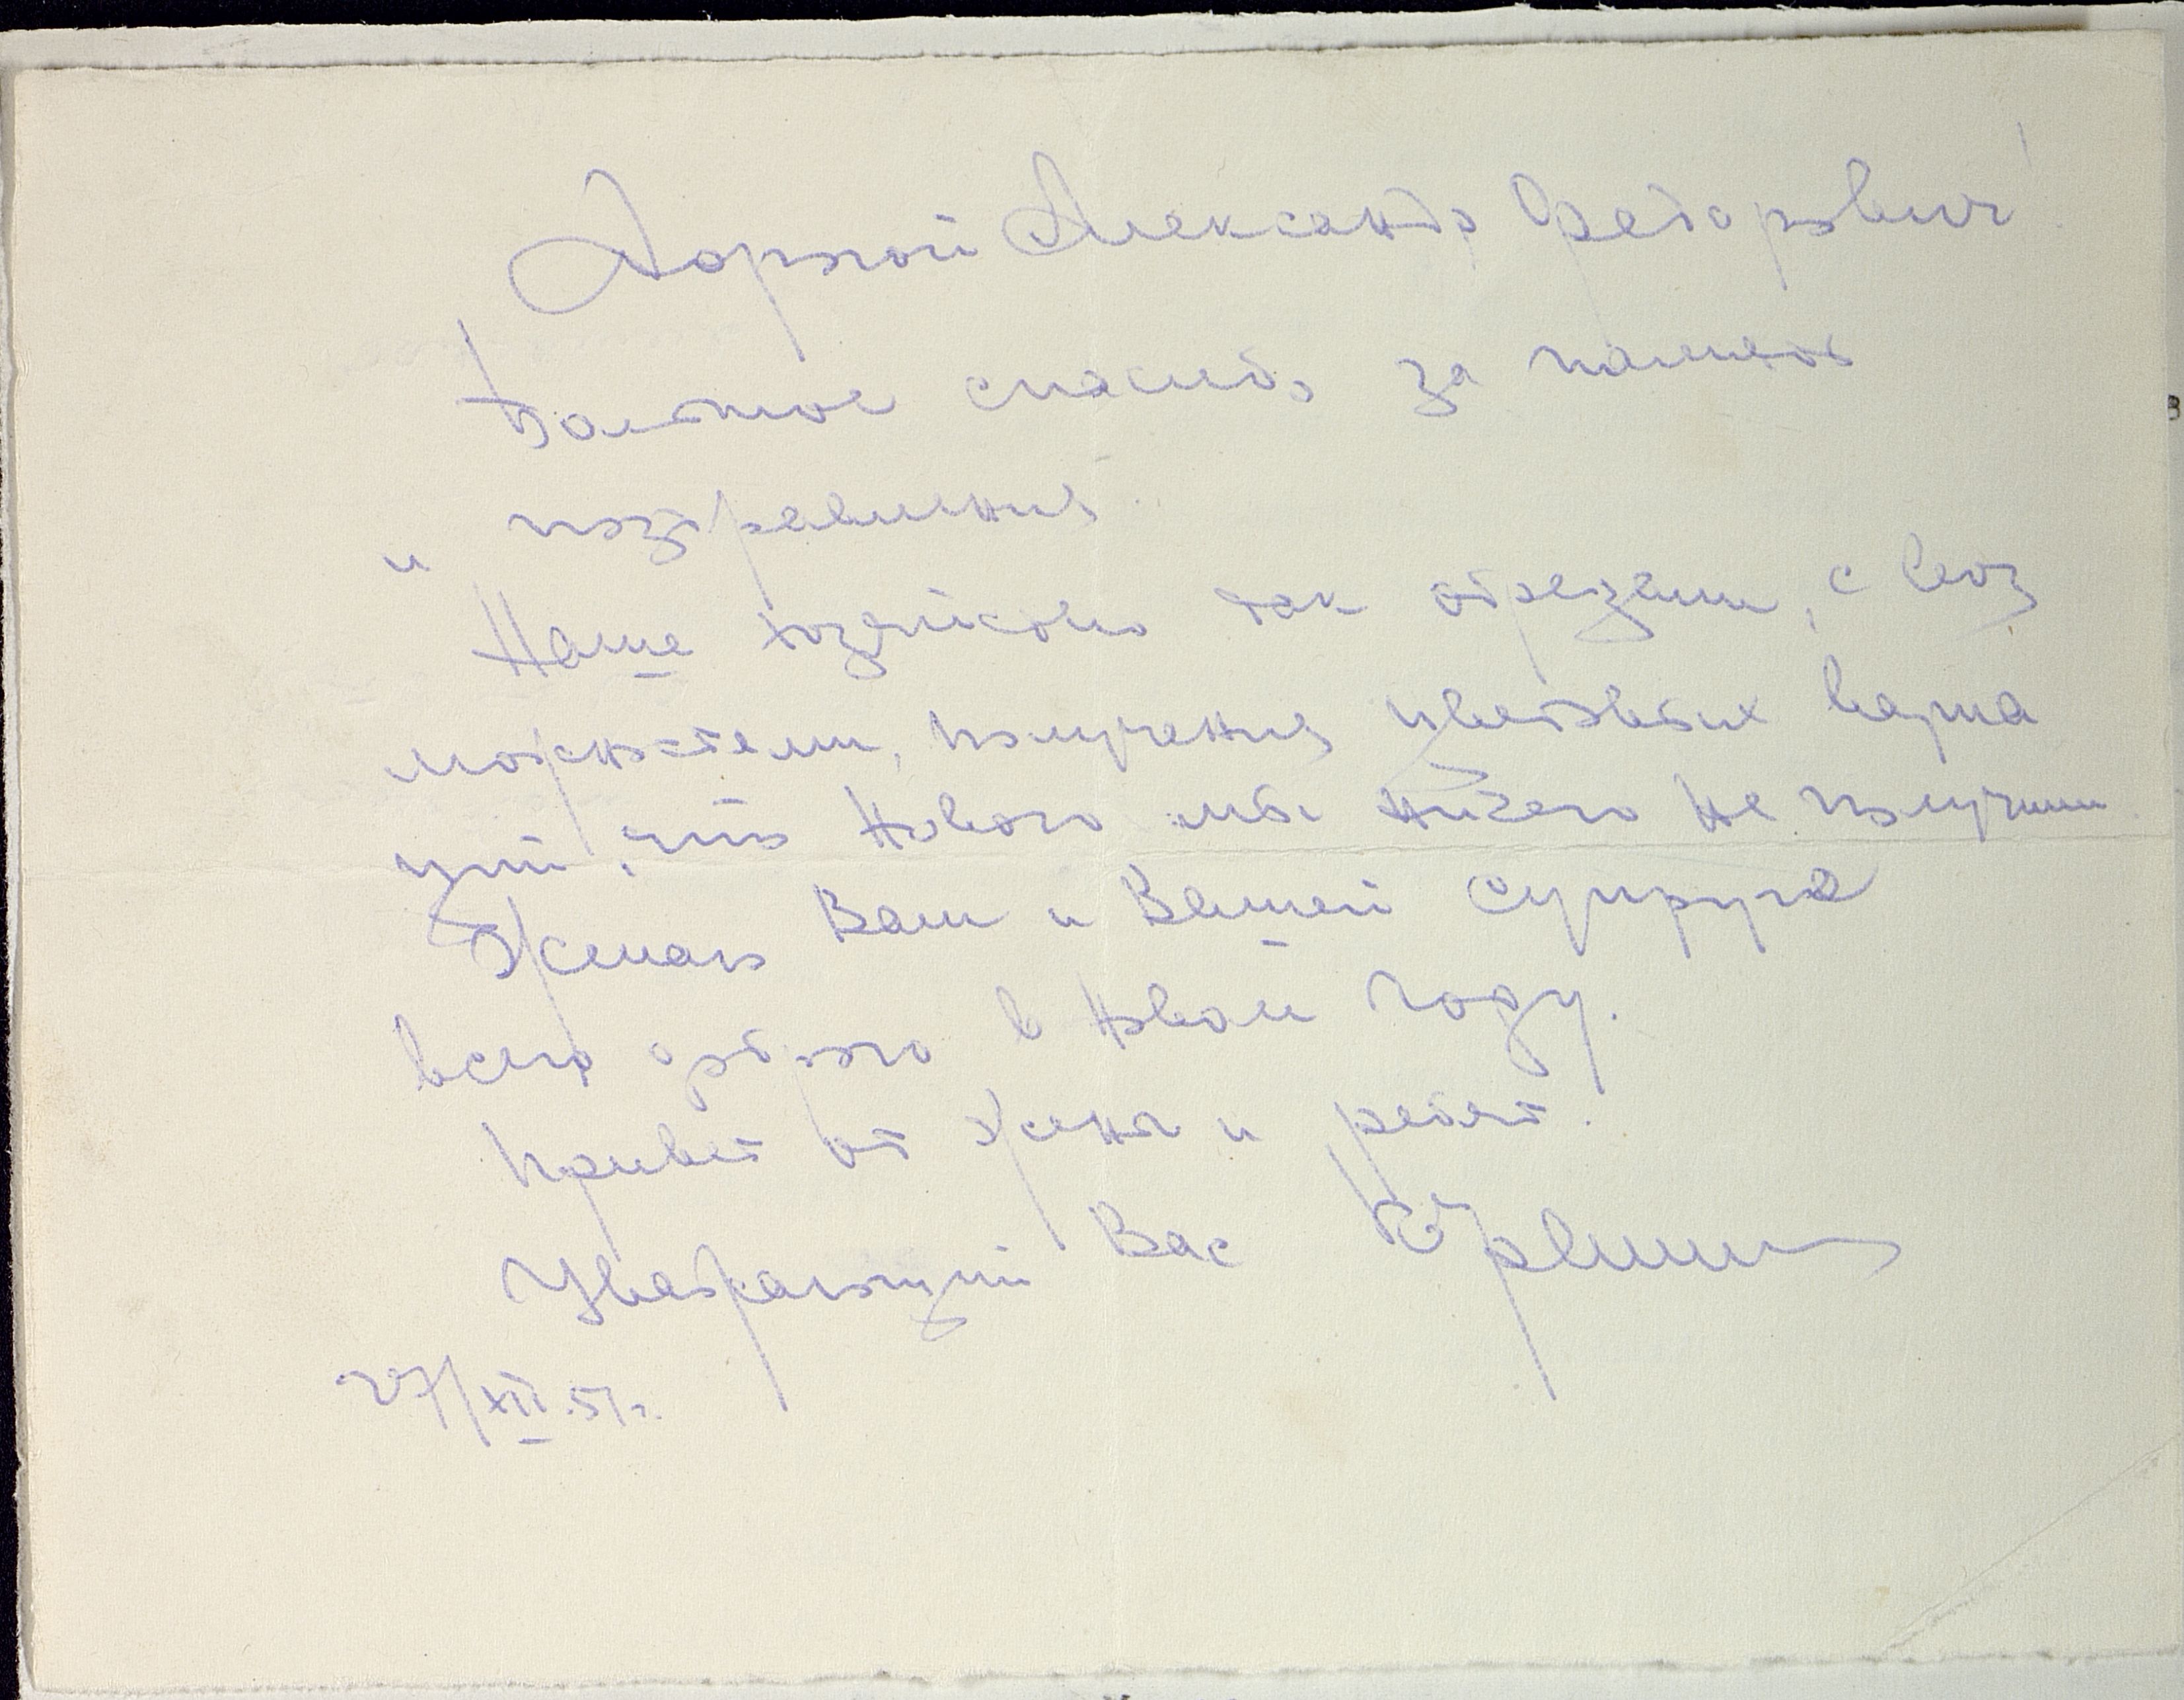 Дорогой Александр Федорович!
Большое спасибо за память
и поздравления.
Наше хозяйство так обрезали, с воз
можностями, получения цветовых вариа
ций, что нового мы ничего не получили.
Желаю Вам и Вашей супруге
всего доброго в новом году.
Привет от жены и ребят.
Уважающий Вас
27/XII.51г.